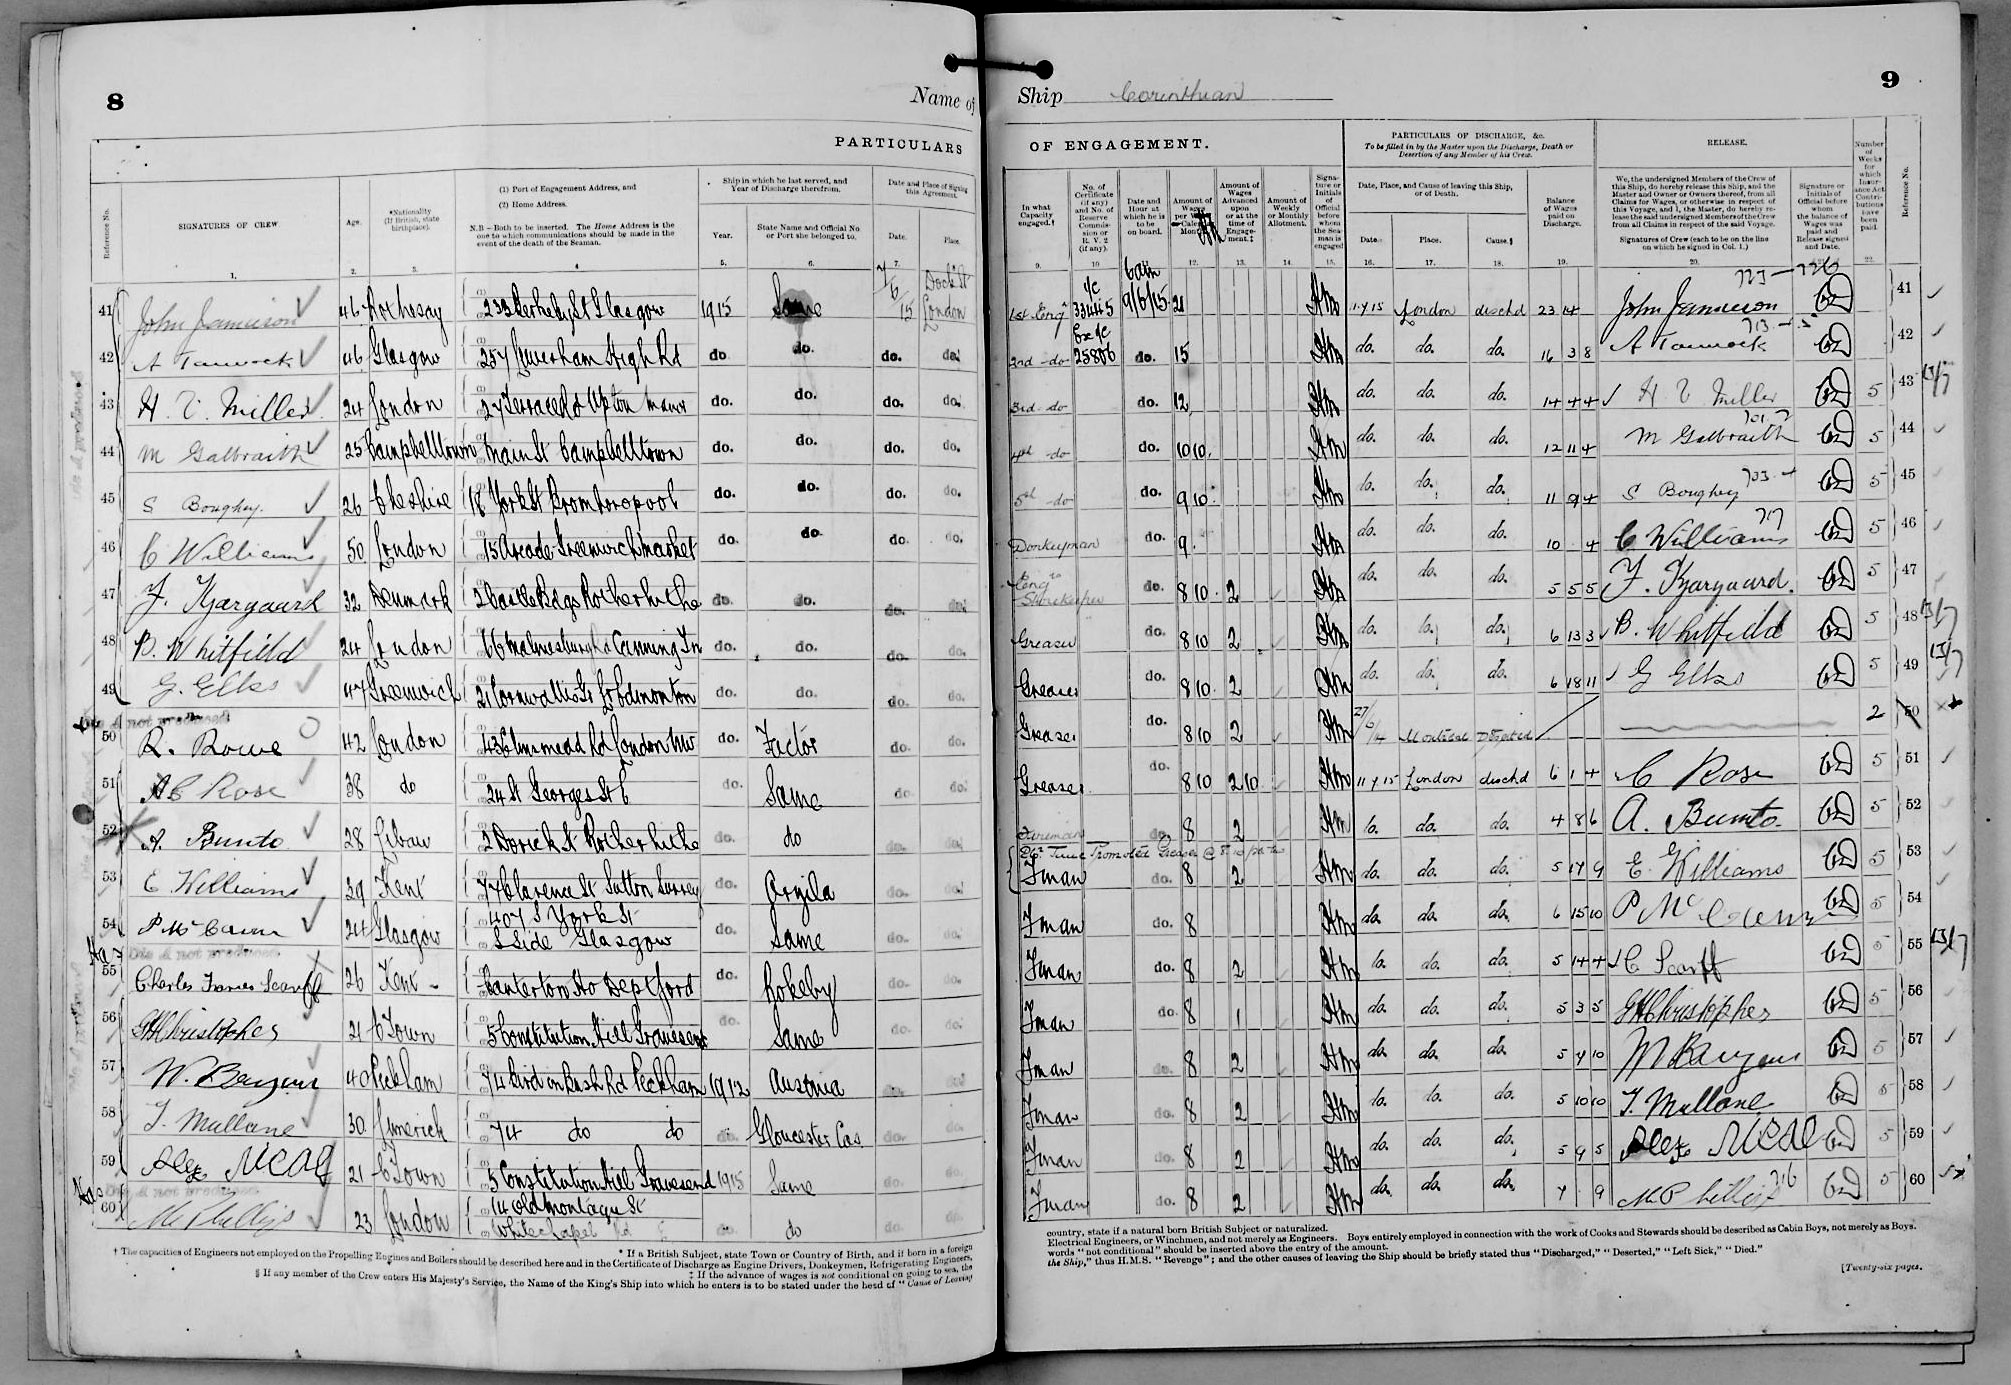 8
Name of
PARTICULARS
Reference No.
SIGNATURES OF CREW
Age.
*Nationality (If British, state birthplace).
(1) Port of Engagement Address, and
(2) Home Address.
N.B.—Both to be inserted. The Home Address is the one to which communications should be made in the event of the death of the Seaman.
Ship in which he last served, and Year of Discharge therefrom.
Year.
State Name and Official No or Port she belonged to.
Date and Place of Signing this Agreement.
Date.
Place.
1. 2. 3. 4. 5. 6. 7.
7/6 15 Dock St London
41 John Jamieson 46 Rothesay Glasgow 1915 Same
42 A Tannock 46 Glasgow 257 Lewisham High Rd do. do. do. do.
43 H. V. Miller 24 London 27 Terrace Rd Upton Manor do. do. do. do.
44 M Galbraith 25 Campbelltown Main St Campbelltown do. do. do. do.
45 S Boughey. 26 Cheshire 18 York St Bromboropool do. do. do. do.
46 C Williams 50 London 15 Arcade Greenwich Market do. do. do. do.
47 F. Kjargaard 32 Denmark 2 Castle Bdgs Rotherhithe do. do. do. do.
48 B. Whitfield 24 London 66 Malmesbury Rd Canning Tn do. do. do. do.
49 G. Elks 47 Greenwich 21 Cornwallis Gr Ld Edmonton do. do. do. do.
Dis A not produced
50 R. Rowe 42 London 43 Elmsmead Rd London NW do. Factor do. do.
51 C Rose 38 do 24 St Georges St E do. Same do. do.
52 A. Bunto 28 Libau 2 Dorick St Rotherhithe do. do do. do.
53 E Williams 39 Kent 77 Clarence St Sutton Surrey do. Arzila do. do.
54 P McCawn 24 Glasgow 407 S York St S Side Glasgow do. Same do. do.
Dis A not produced
55 Charles James Scarff 26 Kent - Canterton Ho Deptford do. Rokeby do. do.
56 G H Christopher 21 C Town 5 Constitution Hill Gravesend do. Same do. do.
57 W. Benyon 40 Peckham 74 Bird in Bush Rd Peckham 1912 Austria do. do.
58 T. Mullane 30 Limerick 74 do do do. Gloucester Cas do. do.
59 Alex McAl 21 C Town 5 Constitution Hill Gravesend 1915 Same do. do.
Dis A not produced
60 M Phillips 23 London 14 Old Montague St Whitechapel Rd do. do do. do.
† The capacities of Engineers not employed on the Propelling Engines and Boilers should be described here and in the Certificate of Discharge as Engine Drivers, Donkeymen, Refrigerating Engineers,
* If a British Subject, state Town or Country of Birth, and if born in a foreign
‡ If the advance of wages is not conditional on going to sea, the
§ If any member of the Crew enters His Majesty's Service, the Name of the King's Ship into which he enters is to be stated under the head of "Cause of Leaving
9
Ship Corinthian
OF ENGAGEMENT.
PARTICULARS OF DISCHARGE, &c.
To be filled in by the Master upon the Discharge, Death or Desertion of any Member of his Crew.
RELEASE.
Number of Weeks for which Insurance Act Contributions have been paid.
Reference No.
In what Capacity engaged.†
No. of Certificate (if any) and No. of Reserve Commission or R. V. 2 (if any).
Date and Hour at which he is to be on board.
Amount of Wages per Week or Calendar Month.
Amount of Wages Advanced upon or at the time of Engagement.‡
Amount of Weekly or Monthly Allotment.
Signature or Initials of Official before whom the Seaman is engaged
Date, Place, and Cause of leaving this Ship, or of Death.
Date.
Place.
Cause.§
Balance of Wages paid on Discharge.
We, the undersigned Members of the Crew of this Ship, do hereby release this Ship, and the Master and Owner or Owners thereof, from all Claims for Wages, or otherwise in respect of this Voyage, and I, the Master, do hereby release the said undersigned Members of the Crew from all Claims in respect of the said Voyage.
Signatures of Crew (each to be on the line on which he signed in Col. 1.)
Signature or Initials of Official before whom the balance of Wages was paid and Release signed and Date.
9. 10. 12. 13. 14. 15. 16. 17. 18. 19. 20. 22.
723-726
1st Eng 33445 9/6/15 21 HM 11 7 15 London dischd 23 14 John Jamieson 41
2nd do 25806 do. 15 HM do. do. do. 16 3 8 A Tannock 42
3rd do do. 12 HM do. do. do. 14 4 4 H V Miller 5 43 13/7
4th do do. 10 10 HM do. do. do. 12 11 4 M Galbraith 5 44
5th do do. 9 10 HM do. do. do. 11 9 4 S Boughey 5 45
Donkeyman do. 9. HM do. do. do. 10 4 C Williams 717 5 46
Engrs Storekeeper do. 8 10 2 HM do. do. do. 5 5 5 F. Kjargaard. 5 47
Greaser do. 8 10 2 HM do. do. do. 6 13 3 B. Whitfield 5 48 13/7
Greaser do. 8 10 2 HM do. do. do. 6 18 11 G Elks 5 49 13/7
Greaser do. 8 10 2 HM 27/6/14 Montreal Deserted 2 50
Greaser do. 8 10 2 10 HM 11 7 15 London dischd 6 1 4 C Rose 5 51
Fireman do. 8 2 HM do. do. do. 4 8 6 A. Bunto. 5 52
Fman do. 8 2 HM do. do. do. 5 17 9 E Williams 5 53
Fman do. 8 HM do. do. do. 6 15 10 P McCawn 5 54
Fman do. 8 2 HM do. do. do. 5 14 4 C Scarff 5 55 13/7
Fman do. 8 1 HM do. do. do. 5 3 5 G H Christopher 5 56
Fman do. 8 2 HM do. do. do. 5 7 10 W Benyon 5 57
Fman do. 8 2 HM do. do. do. 5 10 10 T. Mullane 5 58
Fman do. 8 2 HM do. do. do. 5 9 5 Alex McAl 5 59
Fman do. 8 2 HM do. do. do. 7 9 M Phillips 716 5 60
country, state if a natural born British Subject or naturalized.
Electrical Engineers, or Winchmen, and not merely as Engineers. Boys entirely employed in connection with the work of Cooks and Stewards should be described as Cabin Boys, not merely as Boys.
words "not conditional" should be inserted above the entry of the amount.
the Ship," thus H.M.S. "Revenge"; and the other causes of leaving the Ship should be briefly stated thus "Discharged," "Deserted," "Left Sick," "Died."
[Twenty-six pages.